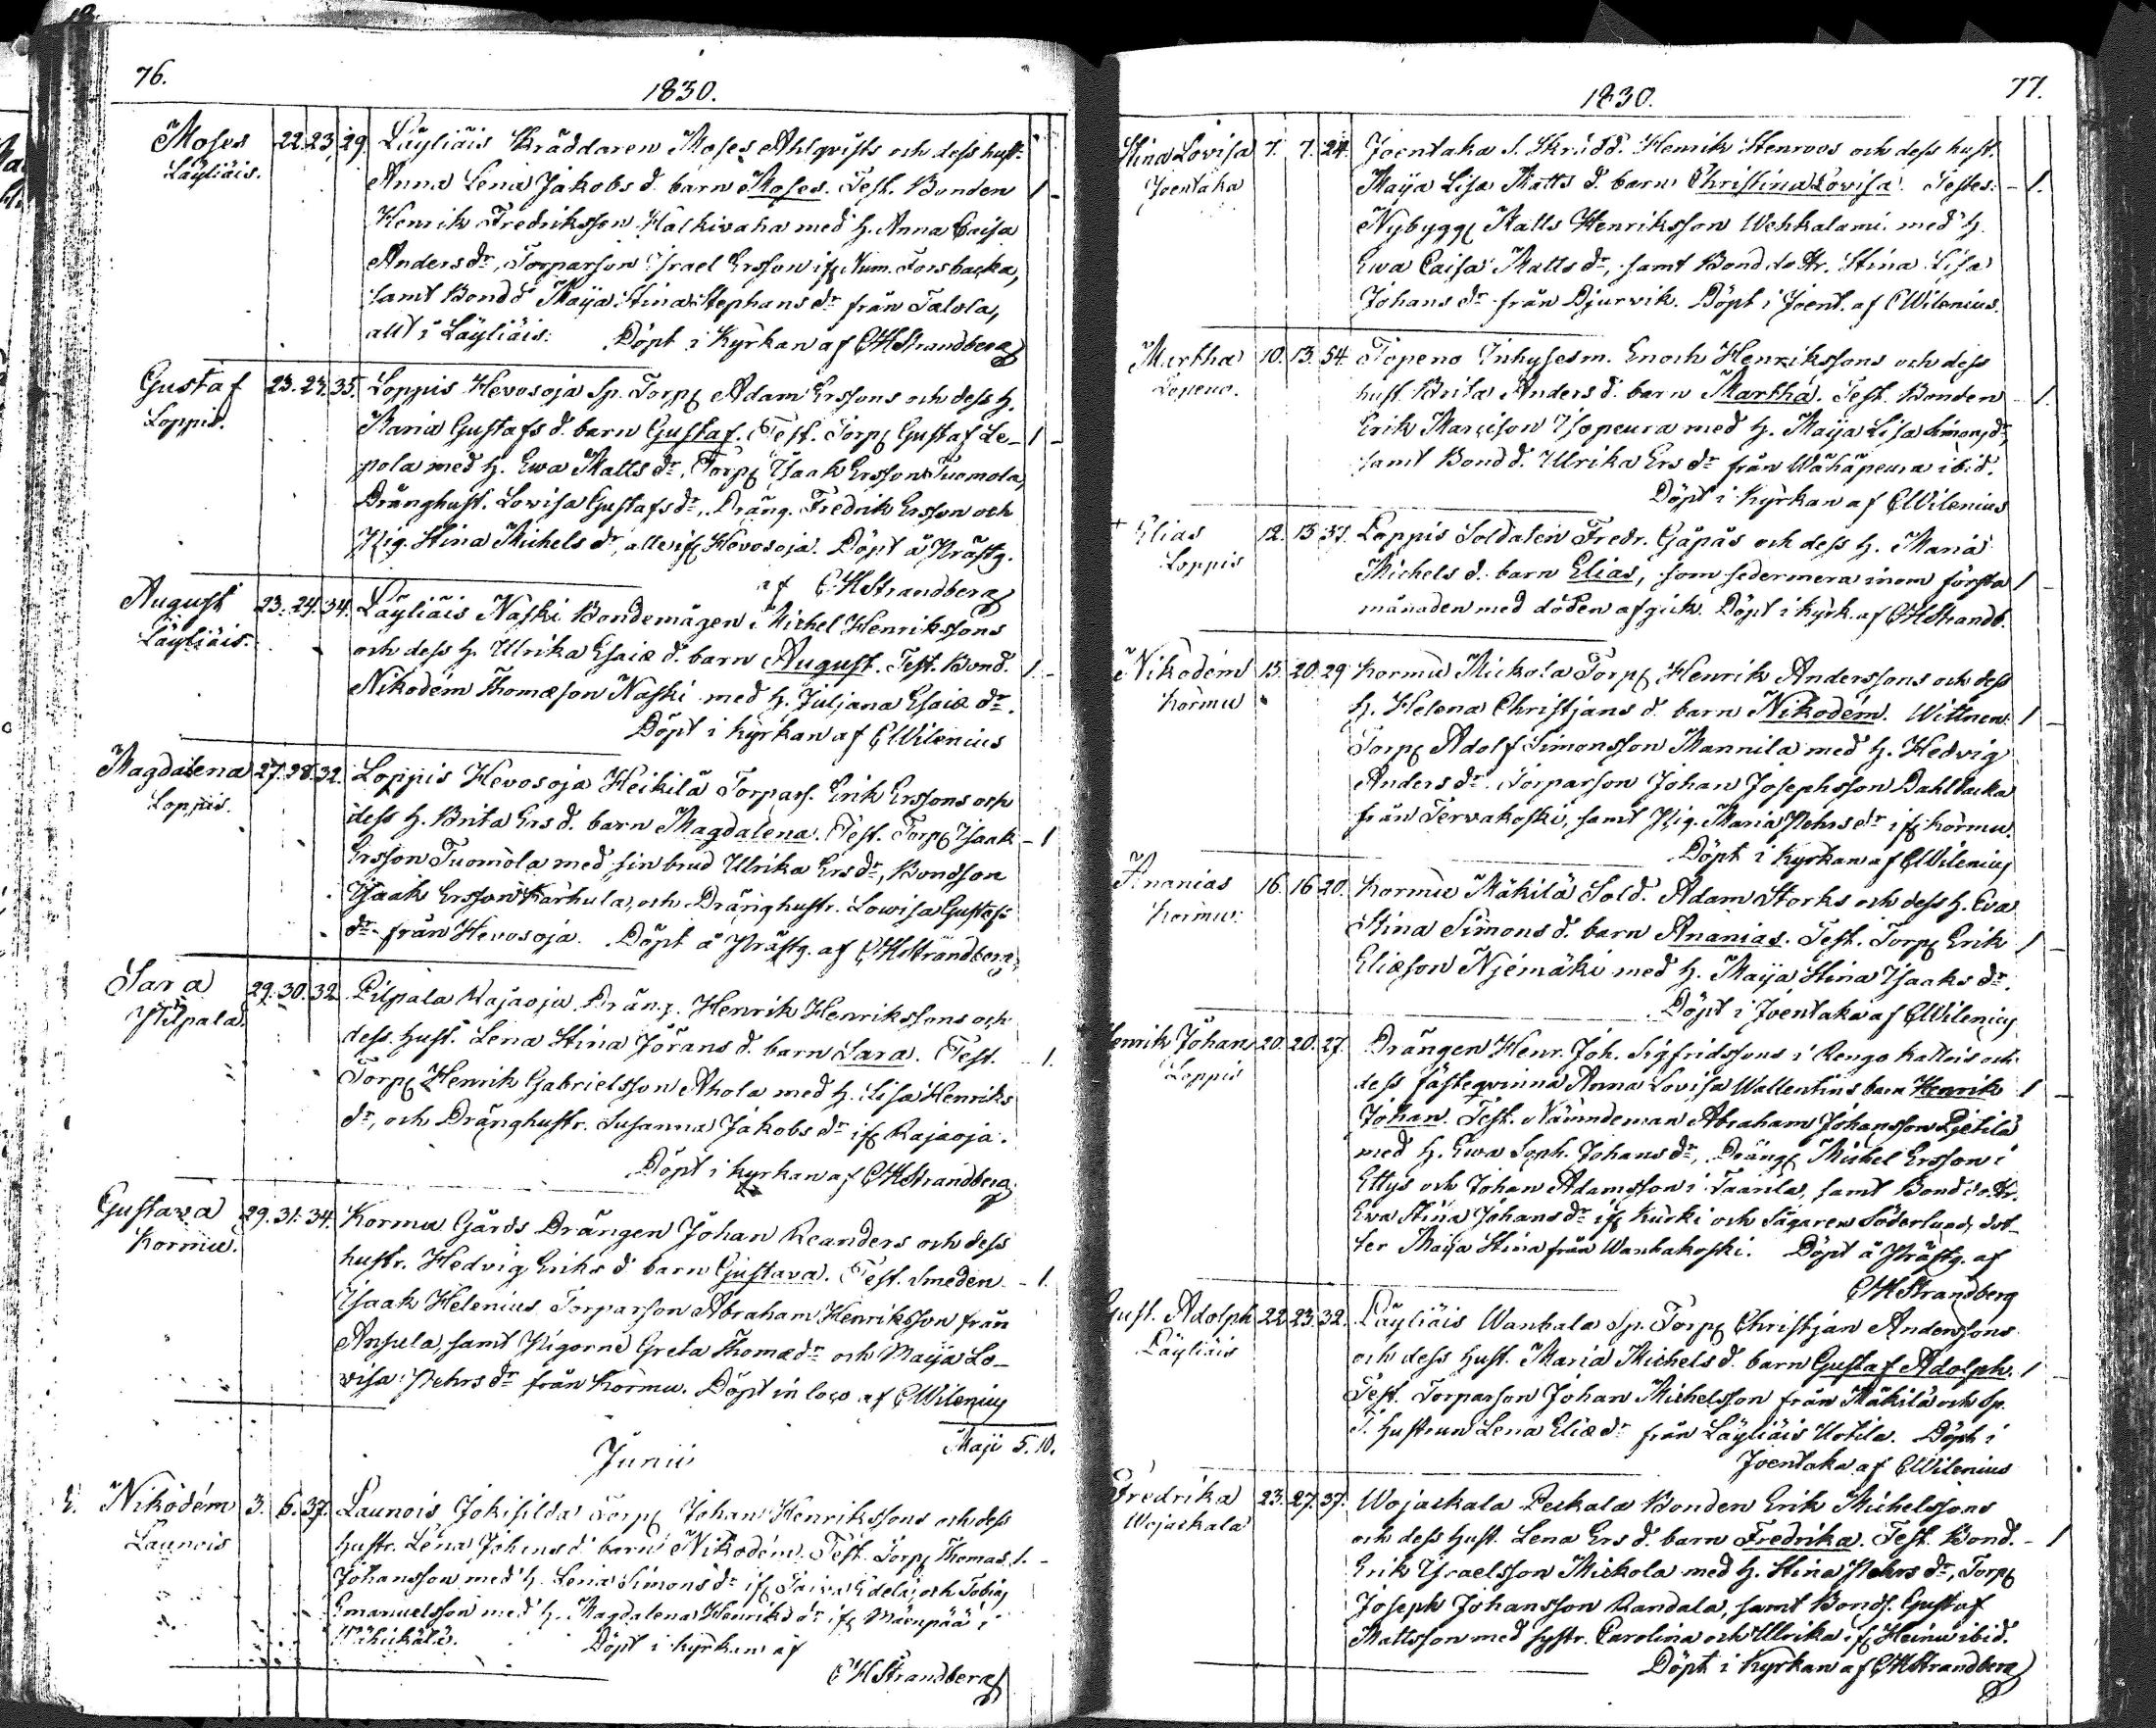 76.
1830.
Moses 22. 23. 29. Läyliäis Skräddaren Moses Ahlqvists och dess hust.
Läyliäis. Anna Lena Jakobs d. barn Moses. Test. Bonden 1
Henrik Fredriksson Hälkivaha med h. Anna Caisa
Anders dr, Torparson Israel Ersson ifr Num. Torsbacka,
samt Bond d. Maija Stina Stephans dr från Talola,
allt i Läyliäis. Döpt i Kyrkan af CHStrandberg
Gustaf 23. 24. 35. Loppis Hevosoja Sp. Torp. Adam Erssons och dess h.
Loppis. Maria Gustafs d. barn Gustaf. Test. Torp. Gustaf Le- 1
pola med h. Ewa Matts dr, Torp. Isaak Ersson Tuomola,
Dränghust. Lovisa Gustafs dr, Dräng. Fredrik Ersson och
Pig. Stina Michels dr, alle ifr Hevosoja. Döpt å Prästg.
af CHStrandberg
August 23. 24. 34. Läyliäis Naski Bondemågen Michel Henrikssons
Läyliäis. och dess h. Ulrika Esaiæ d. barn August. Test. Bond. 1.
Nikodem Thomæson Naski med h. Juljana Esaiæ dr.
Döpt i Kyrkan af CWilenius
Magdalena 27. 28. 32. Loppis Hevosoja Heikilä Torpars. Erik Erssons och
Loppis. dess h. Brita Ers d. barn Magdalena. Test. Torp. Isaak 1
Ersson Tuomola med sin brud Ulrika Ers dr, Bondson
Isaak Ersson Karhula, och Dränghustr. Lowisa Gustafs
dr från Hevosoja. Döpt å Prästg. af CHStrandberg
Sara 29. 30. 32. Pilpala Rajaoja Dräng. Henrik Henrikssons och
Pilpala. dess hust. Lena Stina Jörans d. barn Sara. Test. 1.
Torp. Henrik Gabrielsson Ahola med h. Lisa Henriks
dr, och Dränghustr. Susanna Jakobs dr ifr Rajaoja.
Döpt i kyrkan af CHStrandberg
Gustava 29. 31. 34. Kormu Gårds Drängen Johan Reanders och dess
Kormu. hustr. Hedvig Eriks d. barn Gustava. Test. Smeden 1.
Isaak Helenius, Torparson Abraham Henriksson från
Ansula, samt Pigorne Greta Thomæ dr och Maija Lo-
visa Pehrs dr från Kormu. Döpt in loco af CWilenius
Maji 5. 10.
Junii
Nikodem 3. 6. 37. Launois Jokisilda Torp. Johan Henrikssons och dess
Launois hustr. Lena Johans d. barn Nikodem. Test. Torp. Thomas 1.
Johansson med h. Lena Simons dr ifr och Tobias
Emanuelsson med h. Magdalena Henriks dr ifr Mäenpää i
Wähikälä. Döpt i kyrkan af
CHStrandberg
1830.
77.
Stina Lovisa 7. 7. 24. Joentaka S. Skrädd. Henrik Stenroos och dess hust.
Joentaka Maija Lisa Matts d. barn Christina Lovisa. Testes: 1.
Nybygg. Matts Henriksson Wehkalami med h.
Ewa Caisa Matts dr, samt Bond dotr. Stina Lisa
Johans dr från Djurvik. Döpt i Joent. af CWilenius.
Martha 10. 13. 34. Topeno Inhysesm. Enoch Henrikssons och dess
Topeno. hust. Brita Anders d. barn Martha. Test. Bonden 1.
Erik Marcison Isopeura med h. Maija Lisa Simons dr,
samt Bond d. Ulrika Ers dr från Wähäpeura ibid.
Döpt i Kyrkan af CWilenius
Elias 12. 13. 37. Loppis Soldaten Fredr. Gåpås och dess h. Maria
Loppis Michels d. barn Elias, som sedermera inom första 1
månaden med döden afgick. Döpt i kyrk. af CHStrandb.
Nikodem 15. 20. 29. Kormu Mickola Torp. Henrik Anderssons och dess
Kormu h. Helena Christjans d. barn Nikodem. Wittnen: 1
Torp. Adolf Simonsson Mannila med h. Hedvig
Anders dr, Torparson Johan Josephsson Dahlbacka
från Tervakoski, samt Pig. Maria Pehrs dr ifr Kormu.
Döpt i kyrkan af CWilenius
Ananias 16. 16. 20. Kormu Mäkilä Sold. Adam Storks och dess h. Eva
Kormu. Stina Simons d. barn Ananias. Test. Torp. Erik 1
Eliæson Njemäki med h. Maija Stina Isaaks dr.
Döpt i Joentaka af CWilenius
Henrik Johan 20. 20. 27. Drängen Henr. Joh. Sigfridssons i Rengo Kallois och
Loppis dess fästeqvinna Anna Lovisa Wallentins barn Henrik 1
Johan. Test. Nämndeman Abraham Johansson Pjetilä
med h. Ewa Soph. Johans dr, Dräng. Michel Ersson i
Ettys och Johan Adamsson i Taarila, samt Bond dotr.
Ewa Stina Johans dr ifr Kurki och Sågaren Söderlunds dot-
ter Maija Stina från Wanhakoski. Döpt å Prästg. af
CHStrandberg
Gust. Adolph 22. 23. 32. Läyliäis Wanhala Sp. Torp. Christjan Anderssons
Läyliäis och dess hust. Maria Michels d. barn Gustaf Adolph. 1
Test. Torparson Johan Michelsson från Mäkilä och Sp.
T. hustrun Lena Eliæ dr från Läyliäis Uotila. Döpt i
Joentaka af CWilenius
Fredrika 23. 27. 37. Wojaskala Peskala Bonden Erik Michelssons
Wojaskala och dess hust. Lena Ers d. barn Fredrika. Test. Bond. 1
Erik Israelsson Mickola med h. Stina Pehrs dr, Torp.
Joseph Johansson Randala, samt Bonds. Gustaf
Mattsson med systr. Carolina och Ulrika ifr Heinu ibid.
Döpt i kyrkan af CHStrandberg